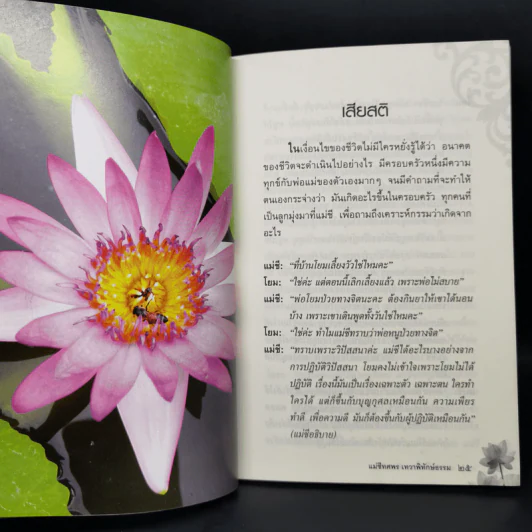 เสียสติ
ในเงื่อนไขของชีวิตไม่มีใครหยั่งรู้ได้ว่า อนาคต
ของชีวิตจะดำเนินไปอย่างไร มีครอบครัวหนึ่งมีความ
ทุกข์กับพ่อแม่ของตัวเองมากๆ จนมีคำถามที่จะทำให้
ตนเองกระจ่างว่า มันเกิดอะไรขึ้นในครอบครัว ทุกคนที่
เป็นลูกมุ่งมาที่แม่ชี เพื่อถามถึงเคราะห์กรรมว่าเกิดจาก
อะไร
แม่ชี: “ที่บ้านโยมเลี้ยงวัวใช่ไหมคะ”
โยม: “ใช่ค่ะ แต่ตอนนี้เลิกเลี้ยงแล้ว เพราะพ่อไม่สบาย”
แม่ชี: “พ่อโยมป่วยทางจิตนะคะ ต้องกินยาให้เขาได้นอน
บ้าง เพราะเขาเดินพูดทั้งวันใช่ไหมคะ”
โยม: “ใช่ค่ะ ทำไมแม่ชีทราบว่าพ่อหนูป่วยทางจิต”
แม่ชี: “ทราบเพราะวิปัสสนาค่ะ แม่ชีได้อะไรบางอย่างจาก
การปฏิบัติวิปัสสนา โยมคงไม่เข้าใจเพราะโยมไม่ได้
ปฏิบัติ เรื่องนี้มันเป็นเรื่องเฉพาะตัว เฉพาะตน ใครทำ
ใครได้ แต่ก็ขึ้นกับบุญกุศลเหมือนกัน ความเพียร
ทำดี เพื่อความดี มันก็ต้องขึ้นกับผู้ปฏิบัติเหมือนกัน”
(แม่ชีอธิบาย)
แม่ชีทศพร เทวาพิทักษ์ธรรม ๒๕